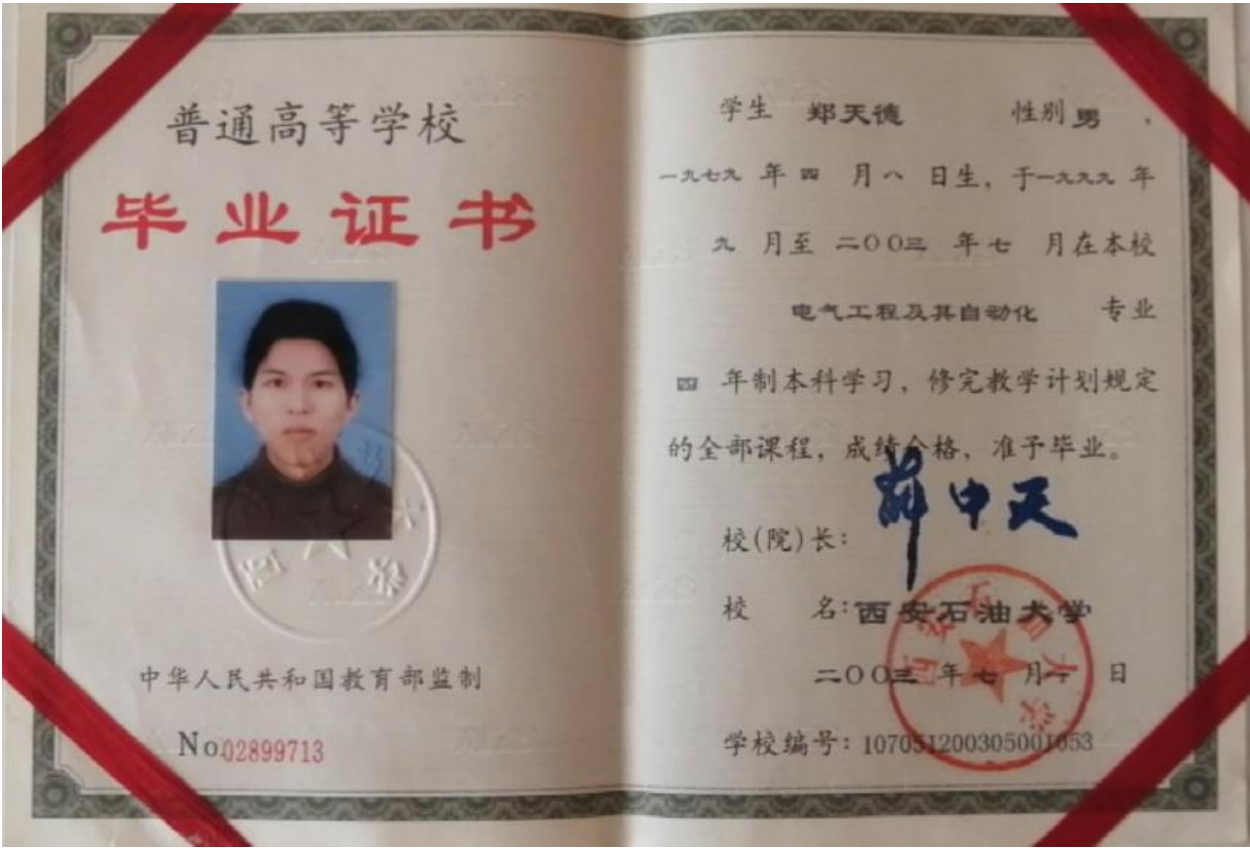 普通高等学校
毕业证书
中华人民共和国教育部监制
No.02899713
学生 郑天德 性别 男 ，
一九七九 年 四 月 八 日生，于一九九九 年
九 月至 二〇〇三 年 七 月在本校
电气工程及其自动化 专业
四 年制本科学习，修完教学计划规定
的全部课程，成绩合格，准予毕业。
校(院)长：
校 名：西安石油大学
二〇〇三 年 七 月 一 日
学校编号：107051200305001053